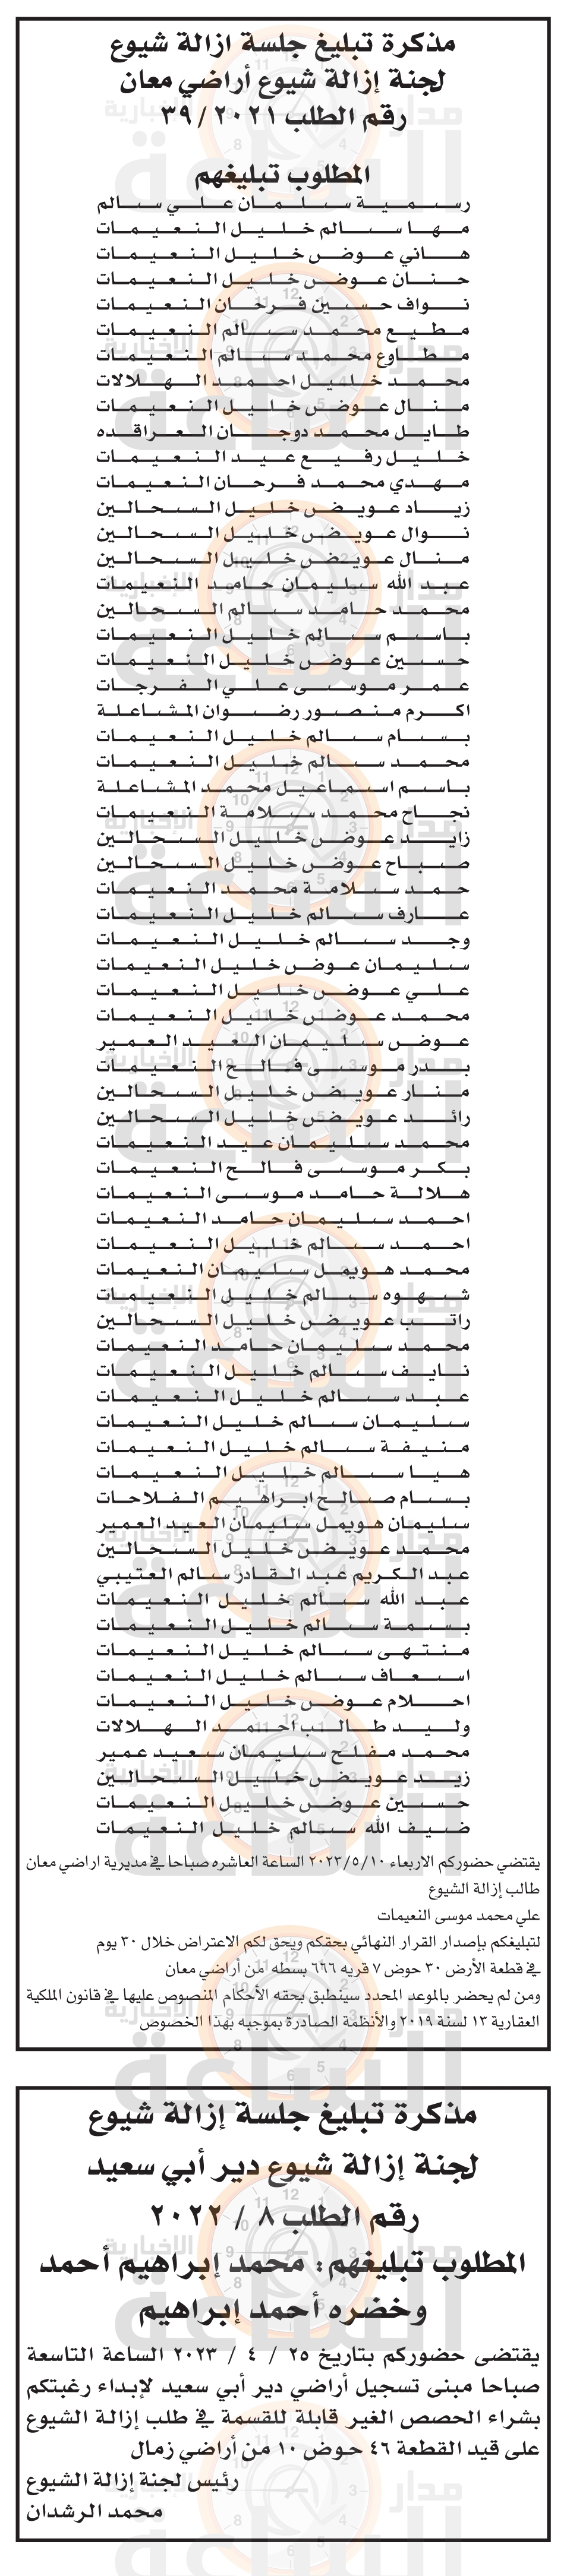 مذكرة تبليغ جلسة ازالة شيوع
لجنة إزالة شيوع أراضي معان
رقم الطلب ٢٠٢١ / ٣٩
المطلوب تبليغهم
رسمية سلمان علي سالم
مها سالم خليل النعيمات
هاني عوض خليل النعيمات
حنان عوض خليل النعيمات
نواف حسين فرحان النعيمات
مطيع محمد سالم النعيمات
مطاوع محمد سالم النعيمات
محمد خليل احمد الهلالات
منال عوض خليل النعيمات
طايل محمد دوجان العراقده
خليل رفيع عيد النعيمات
مهدي محمد فرحان النعيمات
زياد عويض خليل السحالين
نوال عويض خليل السحالين
منال عويض خليل السحالين
عبد الله سليمان حامد النعيمات
محمد حامد سالم السحالين
باسم سالم خليل النعيمات
حسين عوض خليل النعيمات
عمر موسى علي الفرجات
اكرم منصور رضوان المشاعلة
بسام سالم خليل النعيمات
محمد سالم خليل النعيمات
باسم اسماعيل محمد المشاعلة
نجاح محمد سلامة النعيمات
زايد عوض خليل السحالين
صباح عوض خليل السحالين
حمد سلامة محمد النعيمات
عارف سالم خليل النعيمات
وجد سالم خليل النعيمات
سليمان عوض خليل النعيمات
علي عوض خليل النعيمات
محمد عوض خليل النعيمات
عوض سليمان العيد العمير
بدر موسى فالح النعيمات
منار عويض خليل السحالين
رائد عويض خليل السحالين
محمد سليمان عيد النعيمات
بكر موسى فالح النعيمات
هلالة حامد موسى النعيمات
احمد سليمان حامد النعيمات
احمد سالم خليل النعيمات
محمد هويمل سليمان النعيمات
شهوه سالم خليل النعيمات
راتب عويض خليل السحالين
محمد سليمان حامد النعيمات
نايف سالم خليل النعيمات
عبد سالم خليل النعيمات
سليمان سالم خليل النعيمات
منيفة سالم خليل النعيمات
هيا سالم خليل النعيمات
بسام صالح ابراهيم الفلاحات
سليمان هويمل سليمان العيد العمير
محمد عويض خليل السحالين
عبد الكريم عبد القادر سالم العتيبي
عبد الله سالم خليل النعيمات
بسمة سالم خليل النعيمات
منتهى سالم خليل النعيمات
اسعاف سالم خليل النعيمات
احلام عوض خليل النعيمات
وليد طالب احمد الهلالات
محمد مفلح سليمان سعيد عمير
زيد عويض خليل السحالين
حسين عوض خليل النعيمات
ضيف الله سالم خليل النعيمات
يقتضي حضوركم الاربعاء ٢٠٢٣/٥/١٠ الساعة العاشره صباحا في مديرية اراضي معان
طالب إزالة الشيوع
علي محمد موسى النعيمات
لتبليغكم بإصدار القرار النهائي بحقكم ويحق لكم الاعتراض خلال ٣٠ يوم
في قطعة الأرض ٣٠ حوض ٧ قريه ٦٩٦ بسطه من أراضي معان
ومن لم يحضر بالموعد المحدد سينطبق بحقه الأحكام المنصوص عليها في قانون الملكية
العقارية ١٣ لسنة ٢٠١٩ والأنظمة الصادرة بموجبه بهذا الخصوص
مذكرة تبليغ جلسة إزالة شيوع
لجنة إزالة شيوع دير أبي سعيد
رقم الطلب ٨ / ٢٠٢٢
المطلوب تبليغهم : محمد إبراهيم أحمد
وخضره أحمد إبراهيم
يقتضى حضوركم بتاريخ ٢٥ / ٤ / ٢٠٢٣ الساعة التاسعة
صباحا مبنى تسجيل أراضي دير أبي سعيد لإبداء رغبتكم
بشراء الحصص الغير قابلة للقسمة في طلب إزالة الشيوع
على قيد القطعة ٤٦ حوض ١٠ من أراضي زمال
رئيس لجنة إزالة الشيوع
محمد الرشدان